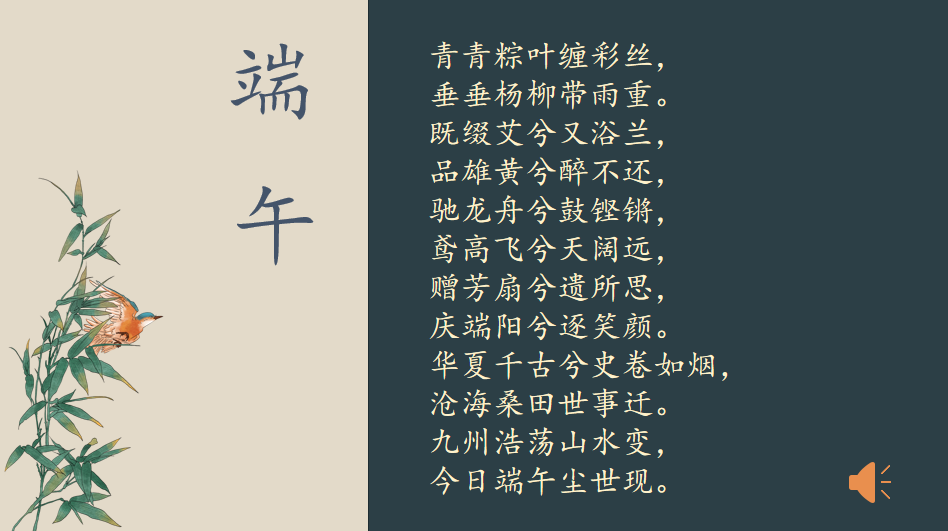 端午
青青粽叶缠彩丝，
垂垂杨柳带雨重。
既缀艾兮又浴兰，
品雄黄兮醉不还，
驰龙舟兮鼓铿锵，
鸢高飞兮天阔远，
赠芳扇兮遗所思，
庆端阳兮逐笑颜。
华夏千古兮史卷如烟，
沧海桑田世事迁。
九州浩荡山水变，
今日端午尘世现。